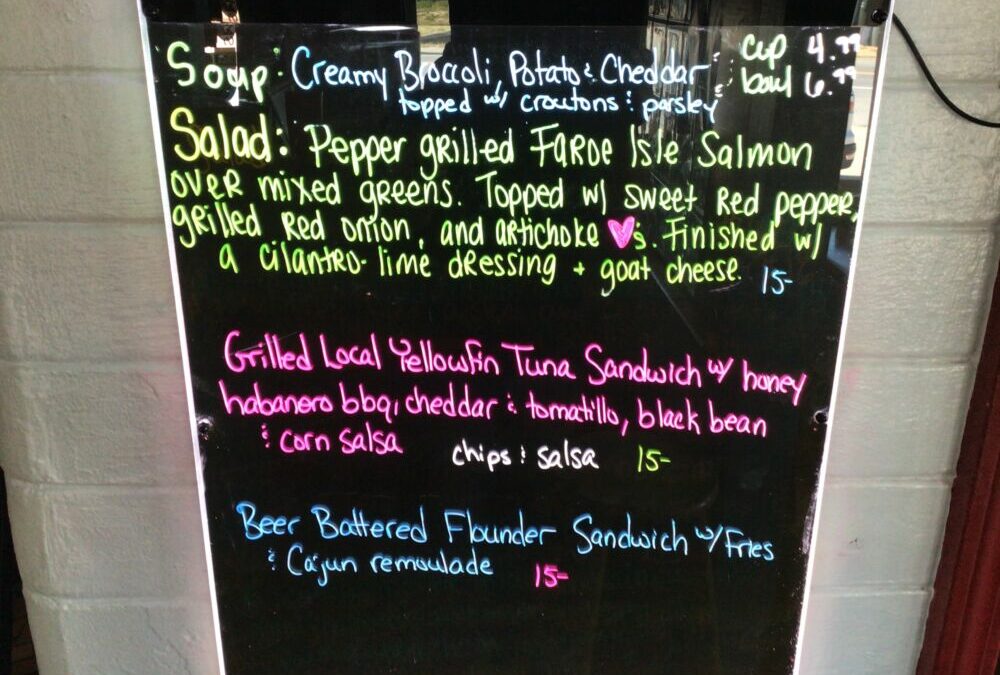 Soup: Creamy Broccoli, Potato & Cheddar : cup 4.99
topped w/ croutons & parsley & bowl 6.99
Salad: Pepper grilled Faroe Isle Salmon
over mixed greens. Topped w/ sweet red pepper,
grilled red onion, and artichoke ♥s. Finished w/
a cilantro-lime dressing + goat cheese. 15-
Grilled Local Yellowfin Tuna Sandwich w/ honey
habanero bbq, cheddar & tomatillo, black bean
& corn salsa chips & salsa 15-
Beer Battered Flounder Sandwich w/ Fries
& Cajun remoulade 15-